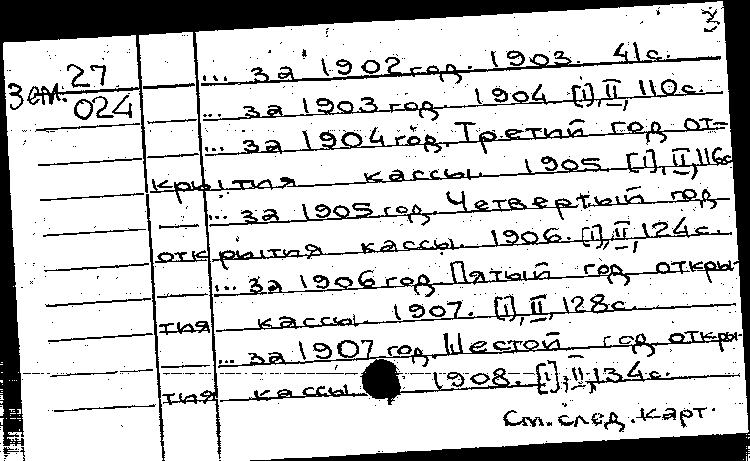 3
Зем. 27
024
... за 1902 год. 1903. 41 с.
... за 1903 год 1904 [I], II, 110 с.
... за 1904 год. Третий год от=
крытия кассы. 1905 [I], II, 116 с
... за 1905 год. Четвертый год
открытия кассы. 1906. [I], II, 124 с.
... за 1906 год Пятый год откры-
тия кассы. 1907. [I], II, 128 с.
... за 1907 год. Шестой год откры-
тия кассы 1908. [I], II, 134 с.
См. след. карт.